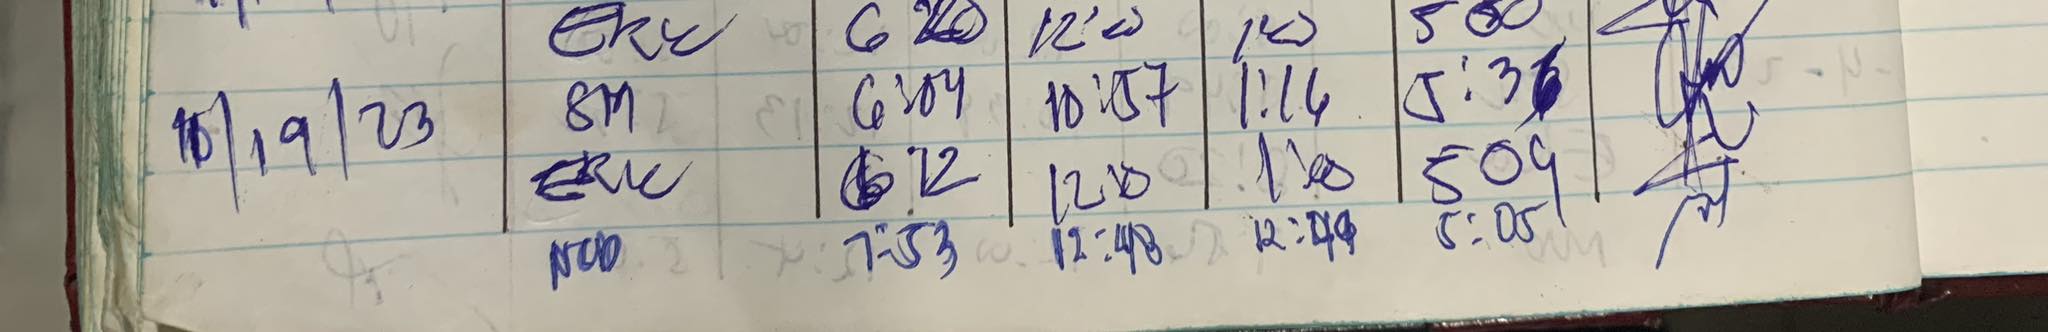 ERC 6 20 12:00 1:00 5 00
10/19/23 SM 6:04 10:57 1:16 5:36
ERC 6:12 12:0 1:00 5 09
NCD 7:53 12:48 12:49 5:05